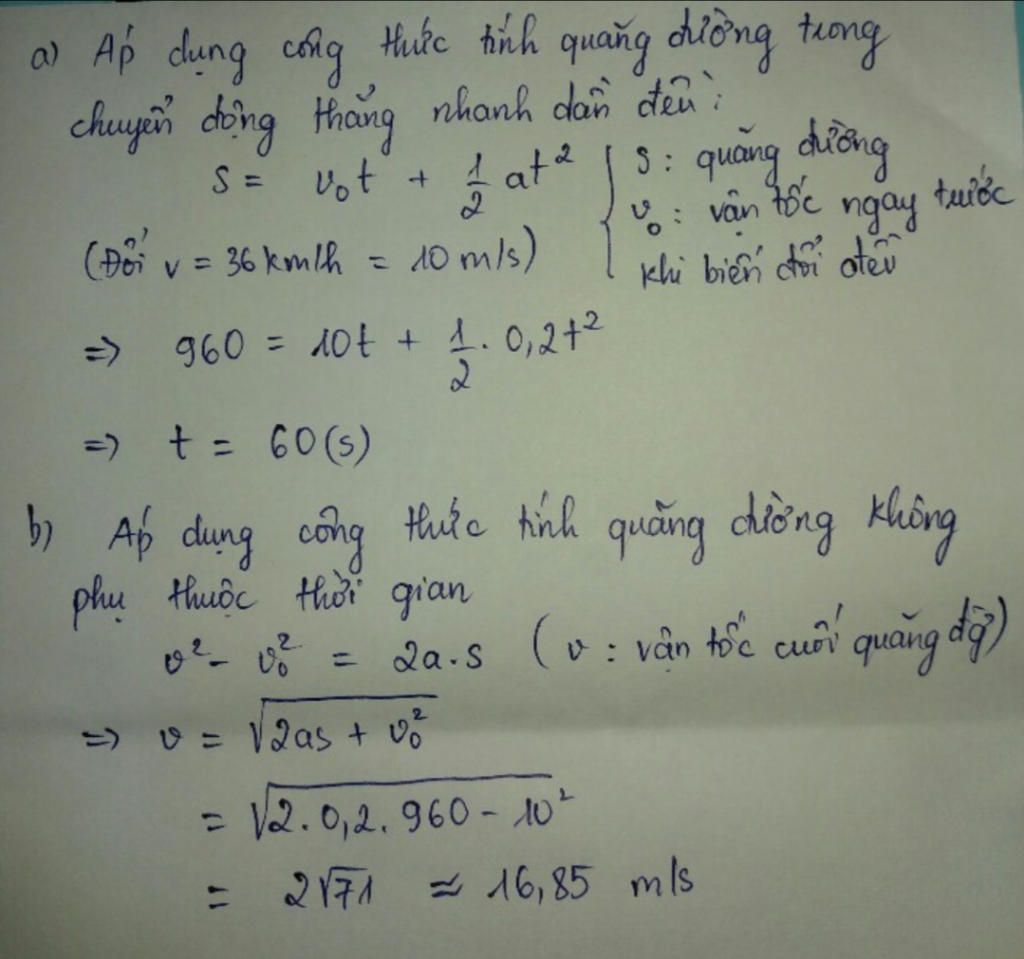 a) Áp dụng công thức tính quãng đường trong
chuyển động thẳng nhanh dần đều:
s = v₀t + 1/2 at²
s: quãng đường
v₀: vận tốc ngay trước
khi biến đổi đều
(Đổi v = 36km/h = 10 m/s)
=> 960 = 10t + 1/2 . 0,2t²
=> t = 60(s)
b) Áp dụng công thức tính quãng đường không
phụ thuộc thời gian
v² - v₀² = 2a.s (v: vận tốc cuối quãng đg)
=> v = √(2as + v₀²)
= √(2.0,2.960 - 10²)
= 2√71 ≈ 16,85 m/s